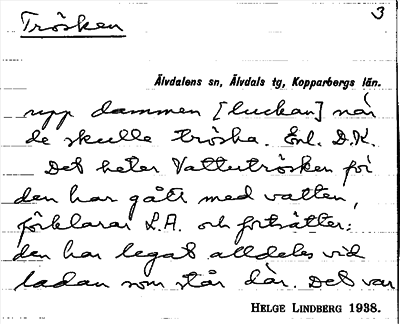 Trösken
3
Älvdalens sn, Älvdals tg, Kopparbergs län.
upp dammen [luckan] när
de skulle tröska. Enl. D.K.
Det heter Vattutrösken för
den har gått med vatten,
förklarar L.A. och fortsätter:
den har legat alldeles vid
ladan som står där. Det var
HELGE LINDBERG 1938.